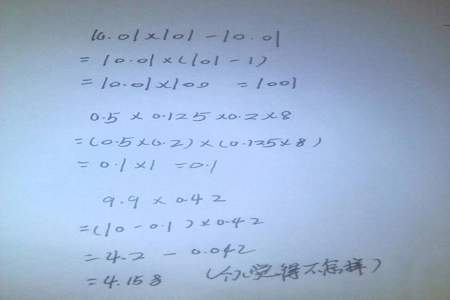 10.01×101-10.01
=10.01×(101-1)
=10.01×100 =1001
0.5×0.125×0.2×8
=(0.5×0.2)×(0.125×8)
=0.1×1 =0.1
9.9×0.42
=(10-0.1)×0.42
=4.2-0.042
=4.158 (个人觉得不怎样)